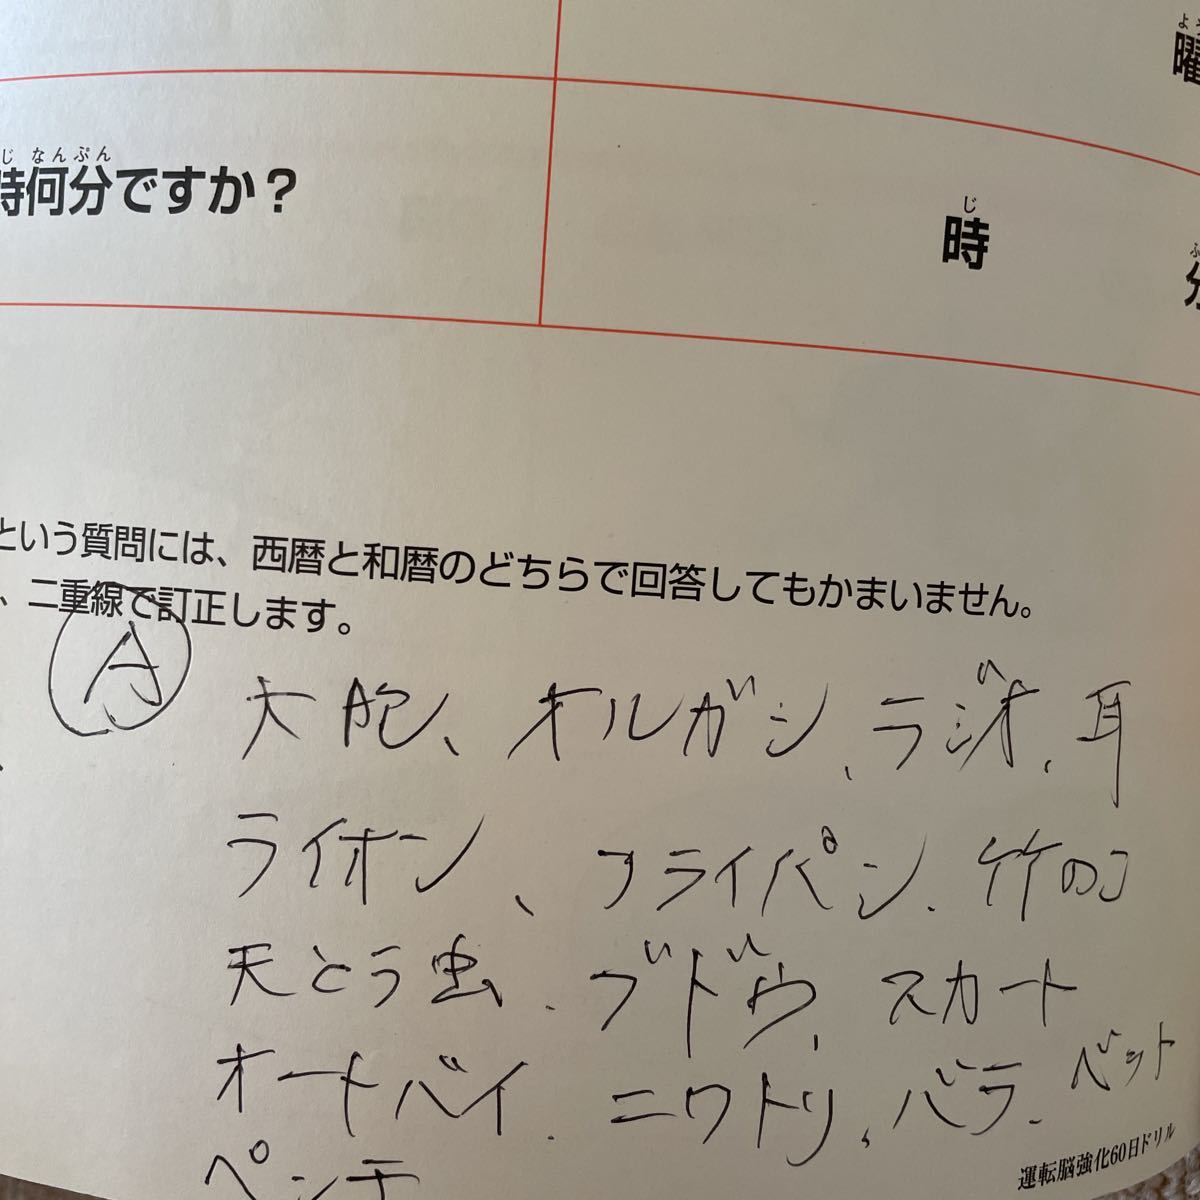 よう
曜
じ なんぷん
時何分ですか？
じ
時
分
という質問には、西暦と和暦のどちらで回答してもかまいません。
、二重線で訂正します。
A 大砲、オルガン、ラジオ、耳
ライオン、フライパン、竹のコ
天とう虫、ブドウ、スカート
オートバイ、ニワトリ、バラ、ベット
ペンチ
運転脳強化60日ドリル